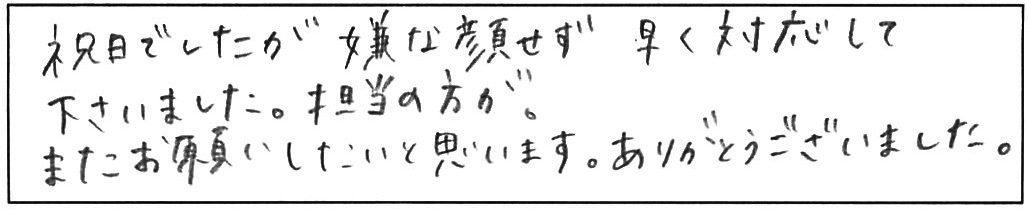 祝日でしたが 嫌な顔せず 早く対応して
下さいました。担当の方が。
またお願いしたいと思います。ありがとうございました。